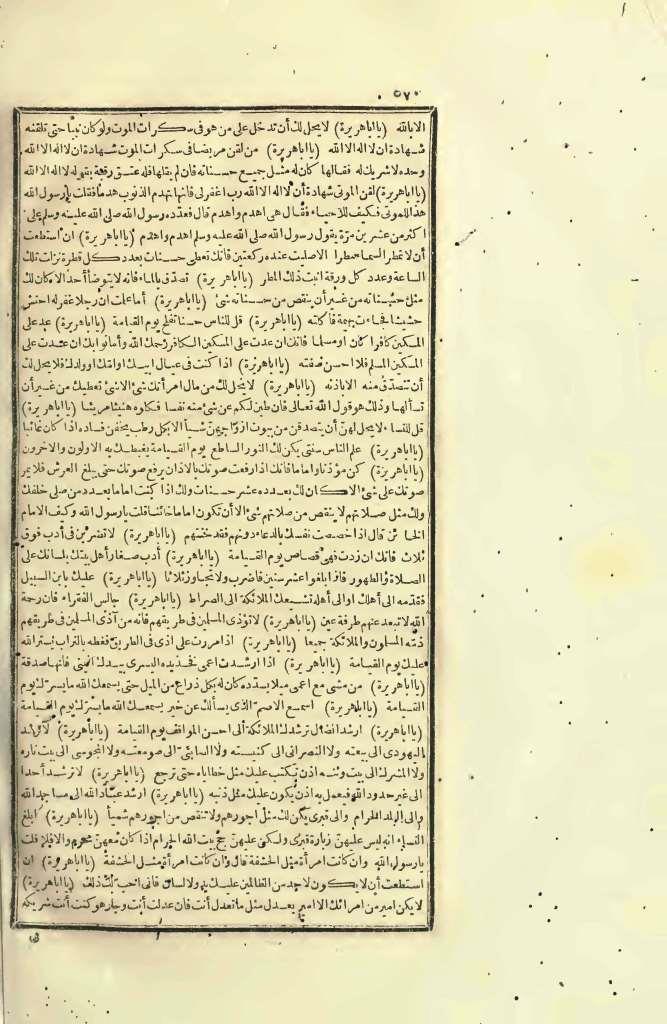 ٥٧٠
الابالله (ياأباهريرة) لايحل لك أن تدخل على من هو فى سكرات الموت ولو كان نبيا حتى تلقنه
شهادة ان لااله الاالله (ياأباهريرة) من لقن مريضا فى سكرات الموت شهادة ان لااله الاالله
وحده لاشريك له فقالها كان له مثل جميع حسناته فان لم يقلها فله عتق رقبة بقوله لااله الاالله
(ياأباهريرة) لقن الموتى شهادة أن لااله الاالله رب اغفر لى فانها تهدم الذنوب هدما فقلت يارسول الله
هذا للموتى فكيف للاحياء فقال هى أهدم وأهدم قال فعدده رسول الله صلى الله عليه وسلم على
أكثر من عشرين مرة يقول رسول الله صلى الله عليه وسلم أهدم وأهدم (ياأباهريرة) ان استطعت
أن لاتمطر السماء مطرا الاصليت عنده ركعتين فانك تعطى حسنات بعدد كل قطرة نزلت تلك
الساعة وعدد كل ورقة أنبت ذلك المطر (ياأباهريرة) تصدق بالماء فانه لايتوضأ أحد الا كان لك
مثل حسناته من غير أن ينقص من حسناته شئ (ياأباهريرة) أما علمت ان رجلا غفر له احتش
حشيشا فجاءت بهيمة فأكلته (ياأباهريرة) قل للناس حسنا تفلح يوم القيامة (ياأباهريرة) عد على
المسكين كافرا كان أو مسلما فانك ان عدت على المسكين الكافر رحمك الله وأما ثوابك ان عدت على
المسكين المسلم فلا أحسن صفته (ياأباهريرة) اذا كنت فى عيال أبيك أو أمك أو ولدك فلا يحل لك
أن تتصدق منه الاباذنه (ياأباهريرة) لايحل لك من مال امرأتك شئ الاشئ تعطيك من غير أن
تسألها وذلك هو قول الله تعالى فان طبن لكم عن شئ منه نفسا فكلوه هنيئا مريئا (ياأباهريرة)
قل للنساء لايحل لهن أن يتصدقن من بيوت أزواجهن شيأ الابكل رطب يخفن فساده اذا كان غائبا
(ياأباهريرة) علم الناس سنتى يكن لك النور الساطع يوم القيامة يغبطك به الاولون والاخرون
(ياأباهريرة) كن مؤذنا أو اماما فانك اذا رفعت صوتك بالاذان يرفع صوتك حتى يبلغ العرش فلا يمر
صوتك على شئ الا كان لك بعدده عشر حسنات ولك اذا كنت اماما بعدد من صلى خلفك
ولك مثل صلاتهم لاينقص من صلاتهم شئ الاأن تكون اماما خائنا قلت يارسول الله وكيف الامام
الخائن قال اذا خصصت نفسك بالدعاء دونهم فقد خنتهم (ياأباهريرة) لاتضربن فى أدب فوق
ثلاث فانك ان زدت فهى قصاص يوم القيامة (ياأباهريرة) أدب صغار أهل بيتك بلسانك على
الصلاة والطهور فاذا بلغوا عشر سنين فاضرب ولا تجاوز ثلاثا (ياأباهريرة) عليك بابن السبيل
فقدمه الى أهلك أو الى أهله تشيعك الملائكة الى الصراط (ياأباهريرة) جالس الفقراء فان رحمة
الله لاتبعد عنهم طرفة عين (ياأباهريرة) لاتؤذى المسلمين فى طريقهم فانه من آذى المسلمين فى طريقهم
ذمته المسلمون والملائكة جميعا (ياأباهريرة) اذا مررت على أذى فى الطريق فغطه بالتراب يستر الله
عليك يوم القيامة (ياأباهريرة) اذا أرشدت أعمى فخذ يده اليسرى بيدك اليمنى فانها صدقة
(ياأباهريرة) من مشى مع أعمى ميلا يسدده كان له بكل ذراع من الميل حتى يسمعك الله مايسرك يوم
القيامة (ياأباهريرة) اسمع الاصم الذى يسألك عن خير يسمعك الله مايسرك يوم القيامة
(ياأباهريرة) ارشد الضال ترشدك الملائكة الى أحسن المواقف يوم القيامة (ياأباهريرة) لاترشد
اليهودى الى بيعته ولا النصرانى الى كنيسته ولا الصابئ الى صومعته ولا المجوسى الى بيت ناره
ولا المشرك الى بيت وثنه اذن يكتب عليك مثل خطاياه حتى ترجع (ياأباهريرة) لاترشد أحدا
الى غير حدود الله فيعمل به اذن يكون عليك مثل ذنبه (ياأباهريرة) ارشد عباد الله الى مساجد الله
والى البلد الحرام والى قبرى يكن لك مثل أجورهم ولا تنقص من أجورهم شيأ (ياأباهريرة) أبلغ
النساء انه ليس عليهن زيارة قبرى ولكن عليهن حج بيت الله الحرام اذا كان معهن محرم والافلا قلت
يارسول الله وان كانت امرأة مثل الحشفة قال وان كانت امرأة مثل الحشفة (ياأباهريرة) ان
استطعت أن لايكون لاحد من الظالمين عليك يد ولا لسان فانى أحب لك ذلك (ياأباهريرة)
لايكن أمير من أمرائك الاأمير يعدل مثل ماتعدل أنت فان عدلت أنت وجار هو كنت أنت شريكه